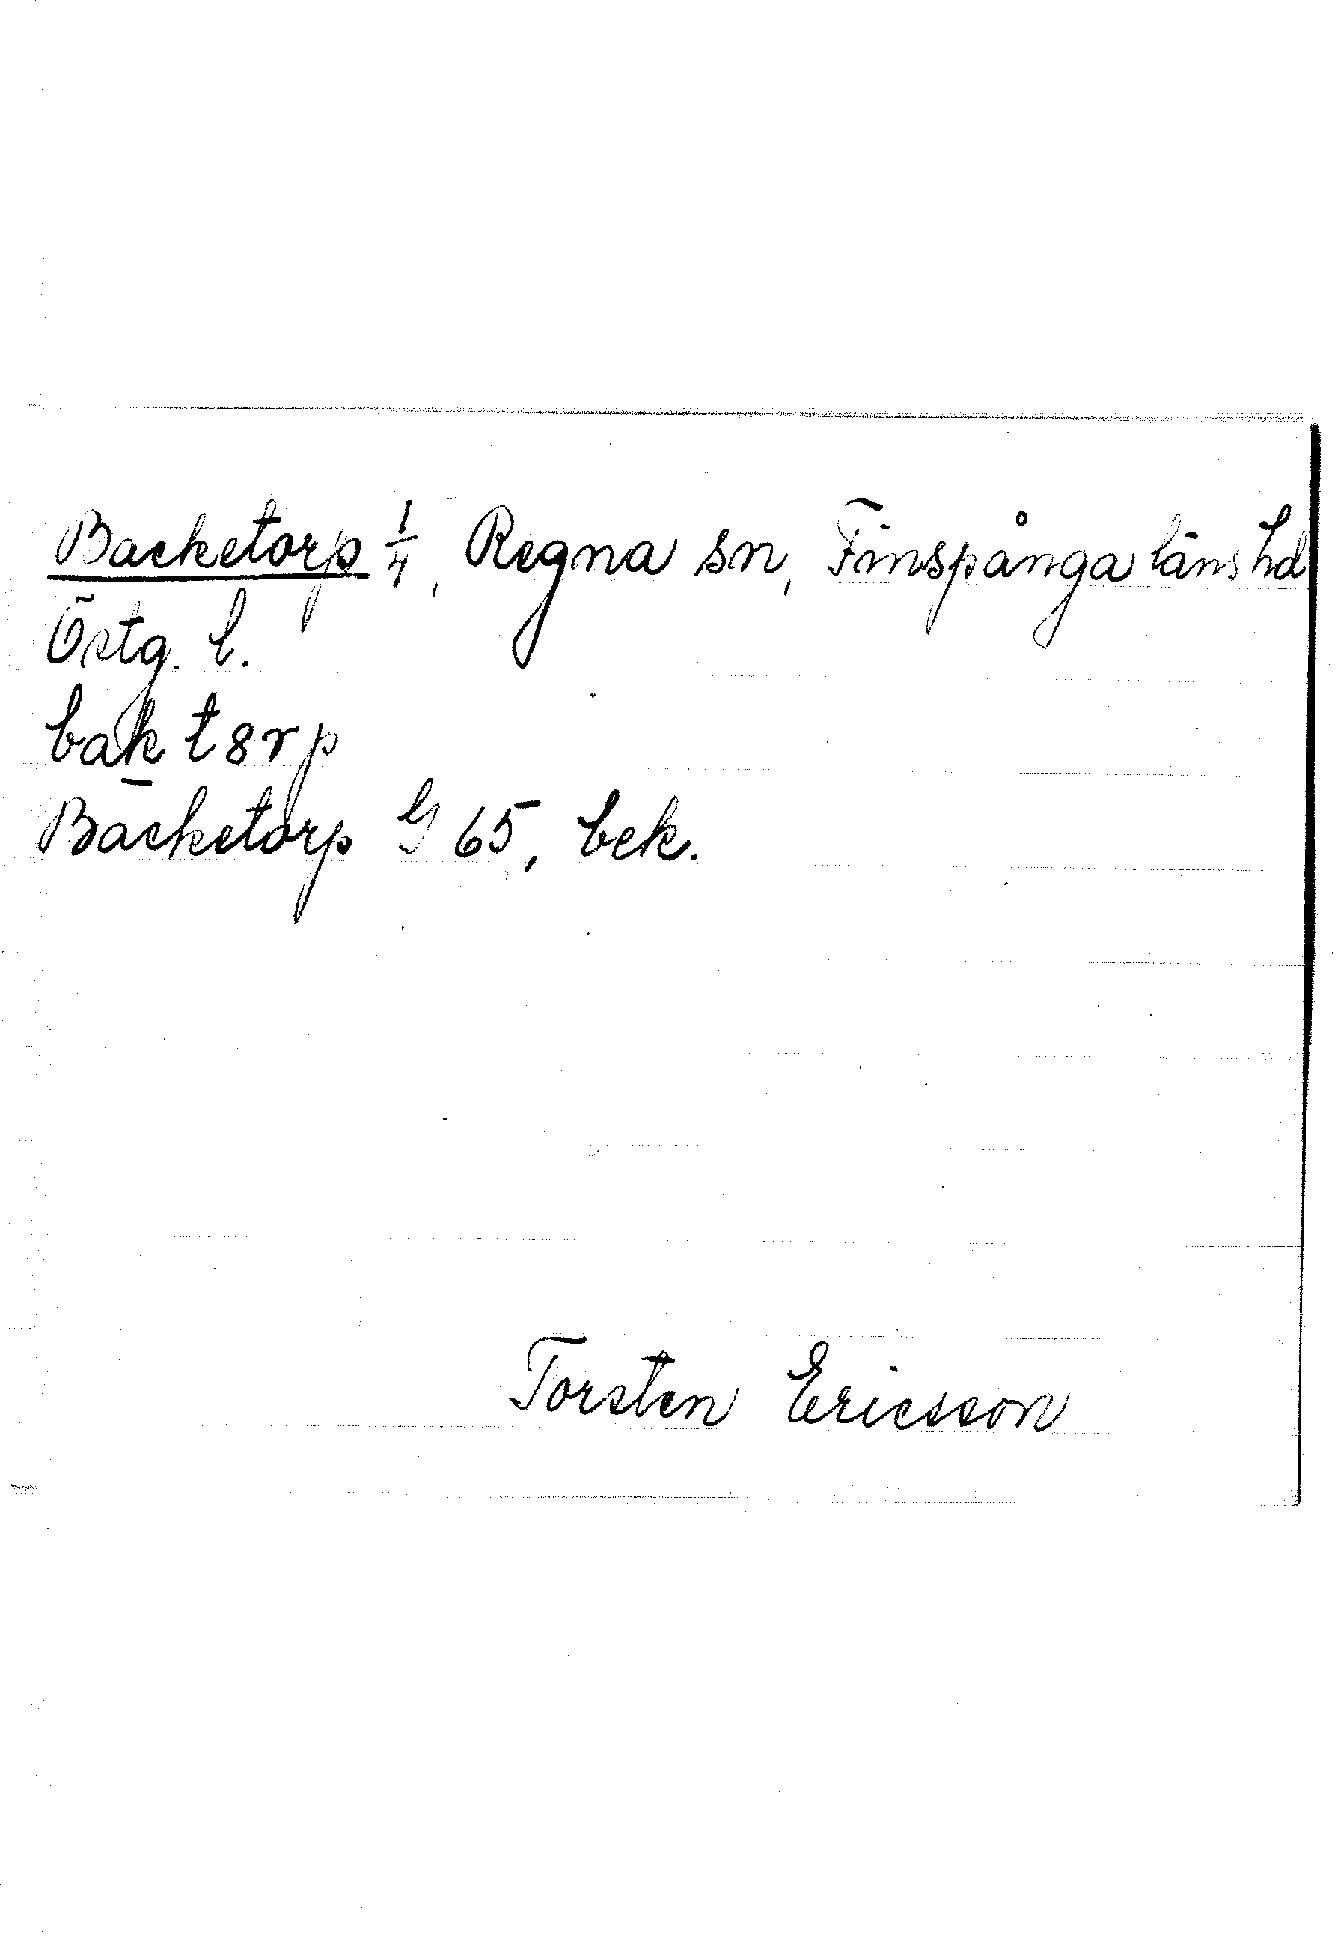 Backetorp 1/4, Regna sn, Finspånga läns hd
Östg. l.
bak t8rp
Backetorp G 65, bek.
Torsten Ericsson